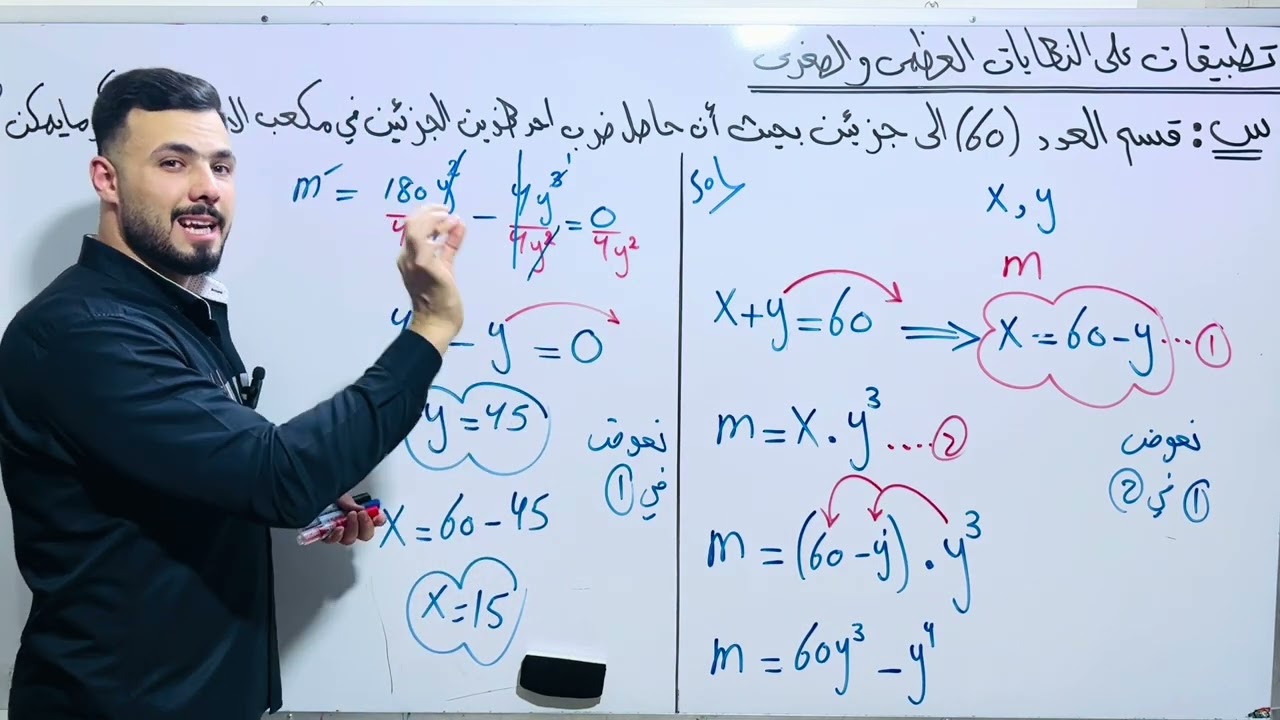 تطبيقات على النهايات العظمى والصغرى
س: قسم العدد (60) الى جزئين بحيث أن حاصل ضرب احد هذين الجزئين في مكعب مايمكن
Sol
x, y
m
x+y=60 ⟹ x=60-y....①
m=x.y³....②
نعوض
① في ②
m=(60-y).y³
m=60y³-y⁴
m′= 180y² - 4y³ = 0
4y² 4y²
- y = 0
y=45
نعوض
في ①
x=60-45
x=15